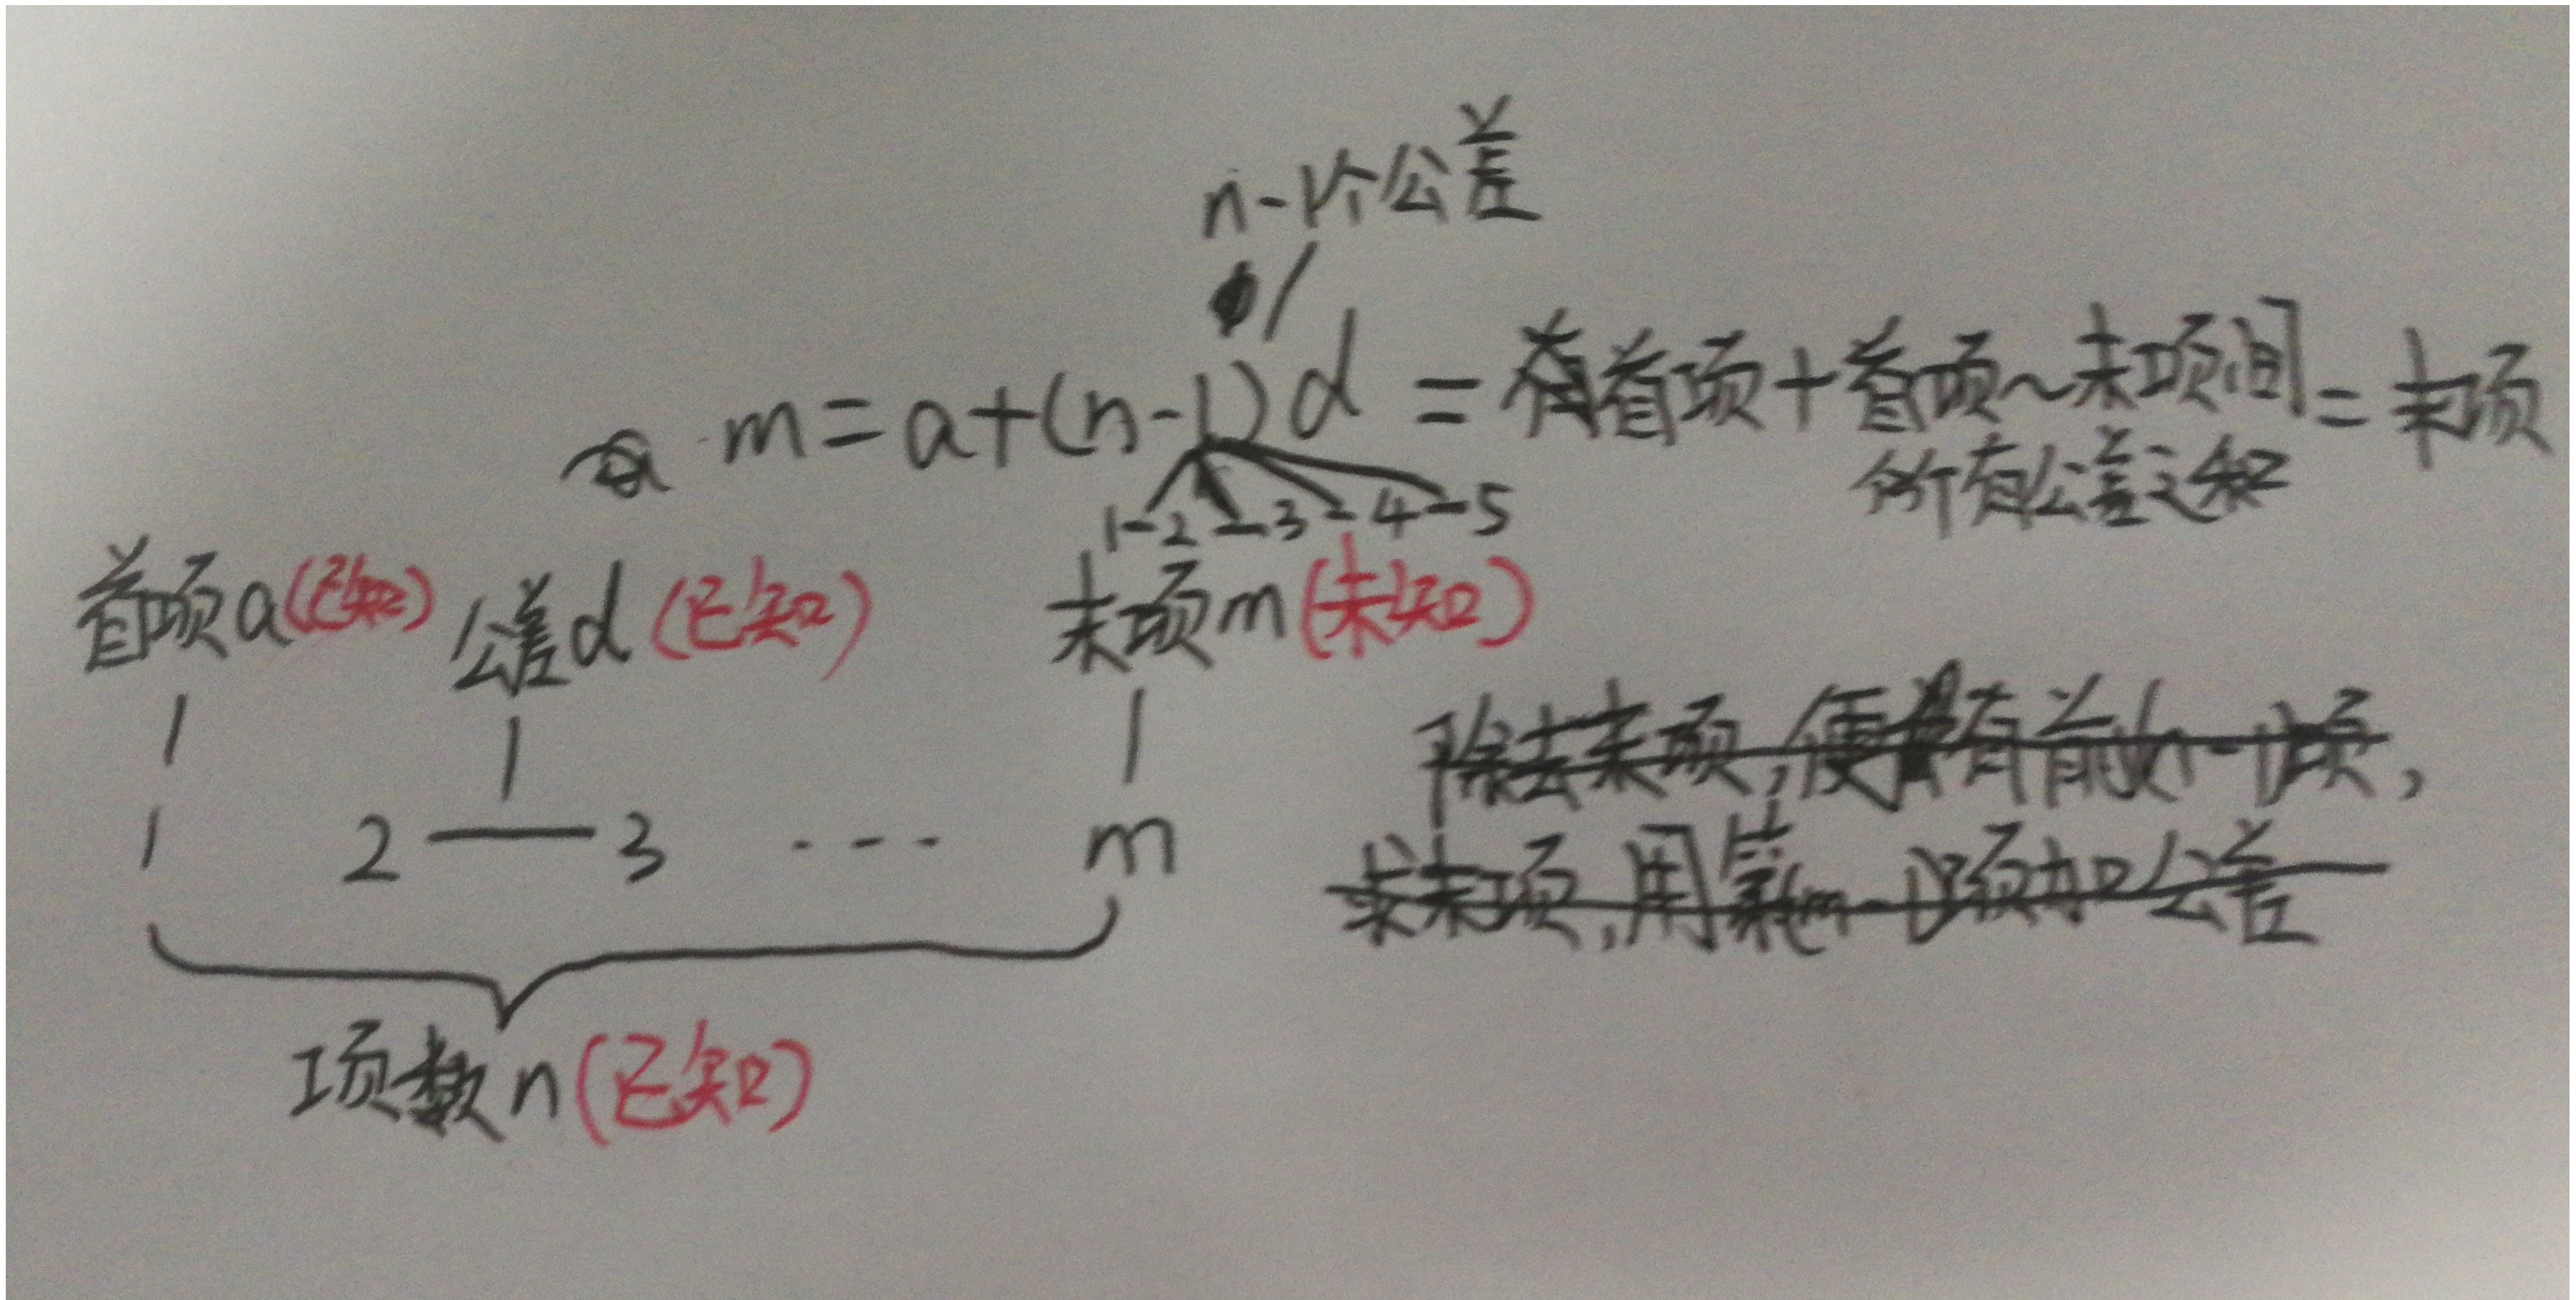 n-1个公差
m=a+(n-1)d=首项+首项~末项间=末项
所有公差之和
1-2-3-4-5
首项a(已知) 公差d(已知) 末项m(未知)
除去末项,便有前(n-1)项,
1 2—3 ---- m
求末项,用第(m-1)项加公差
项数n(已知)